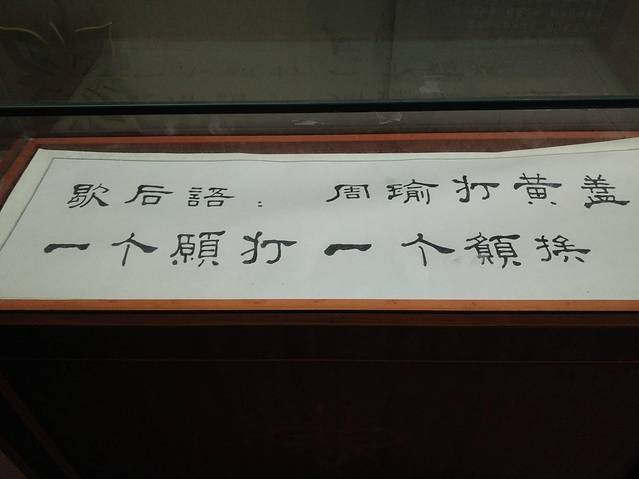 歇后語：周瑜打黃蓋
一个願打一个願挨